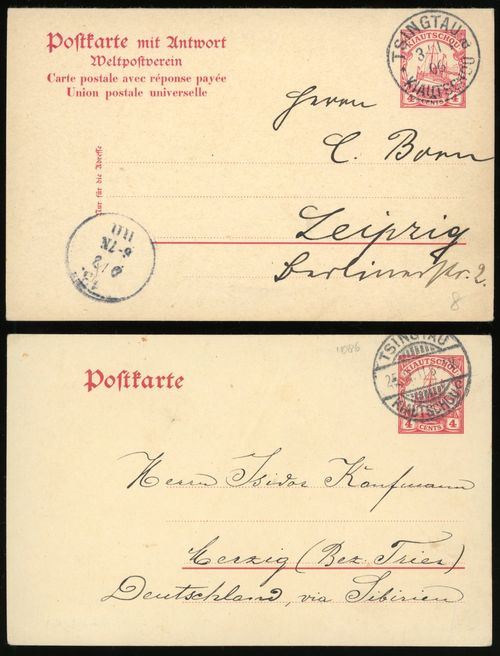 Postkarte mit Antwort
Weltpostverein
Carte postale avec réponse payée
Union postale universelle
TSINGTAU
KIAUTSCHOU
KIAUTSCHOU
4 CENTS 4
Nur für die Adresse
Herrn
C. Born
Leipzig
Berlinerstr. 2.
8
Postkarte
TSINGTAU
KIAUTSCHOU
KIAUTSCHOU
4 CENTS 4
Herrn Isidor Kaufmann
Merzig (Bez. Trier)
Deutschland, via Sibirien